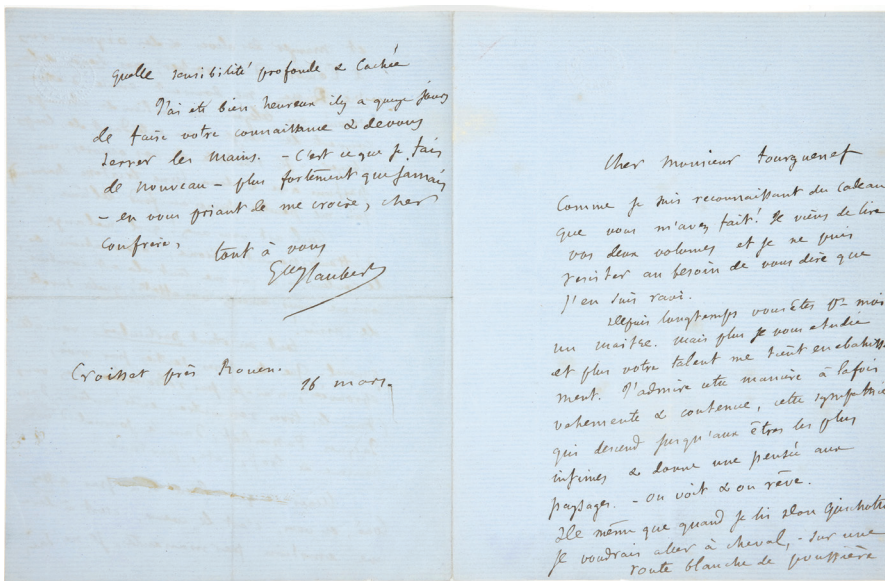 quelle sensibilité profonde & cachée
J'ai été bien heureux il y a quinze jours
de faire votre connaissance & de vous
serrer les mains. – C'est ce que je fais
de nouveau – plus fortement que jamais
– en vous priant de me croire, cher
confrère,
tout à vous
Gve Flaubert
Croisset près Rouen.
16 mars.
Cher Monsieur Tourguenef
Comme je suis reconnaissant du cadeau
que vous m'avez fait! Je viens de lire
vos deux volumes et je ne puis
resister au besoin de vous dire que
j'en suis ravi.
Depuis longtemps vous êtes pr moi
un maître. mais plus je vous etudie
et plus votre talent me tient en ebahisse
ment. J'admire cette manière à la fois
vehemente & contenue, cette sympathie
qui descend jusqu'aux êtres les plus
infimes & donne une pensée aux
paysages. – on voit & on rêve.
De même que quand je lis Don Quichotte
je voudrais aller à cheval, – sur une
route blanche de poussière